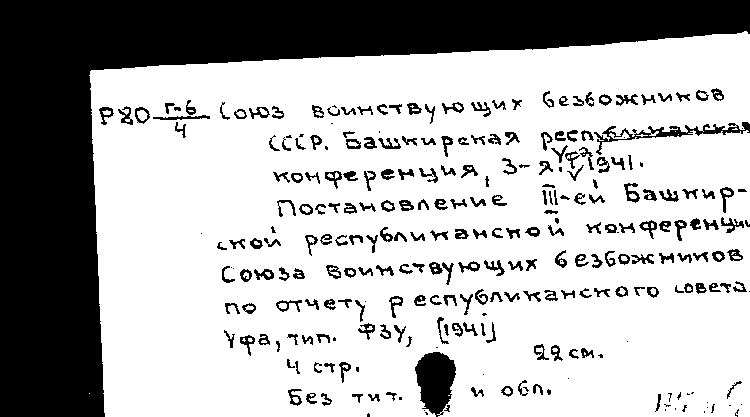 Р80 Г-6/4 Союз воинствующих безбожников
СССР. Башкирская республиканская
конференция, 3-я. Уфа. 1941.
Постановление III-ей Башкир-
ской республиканской конференции
Союза воинствующих безбожников
по отчету республиканского совета.
Уфа, тип. ФЗУ, [1941]
4 стр. 22 см.
Без тит. и обл.